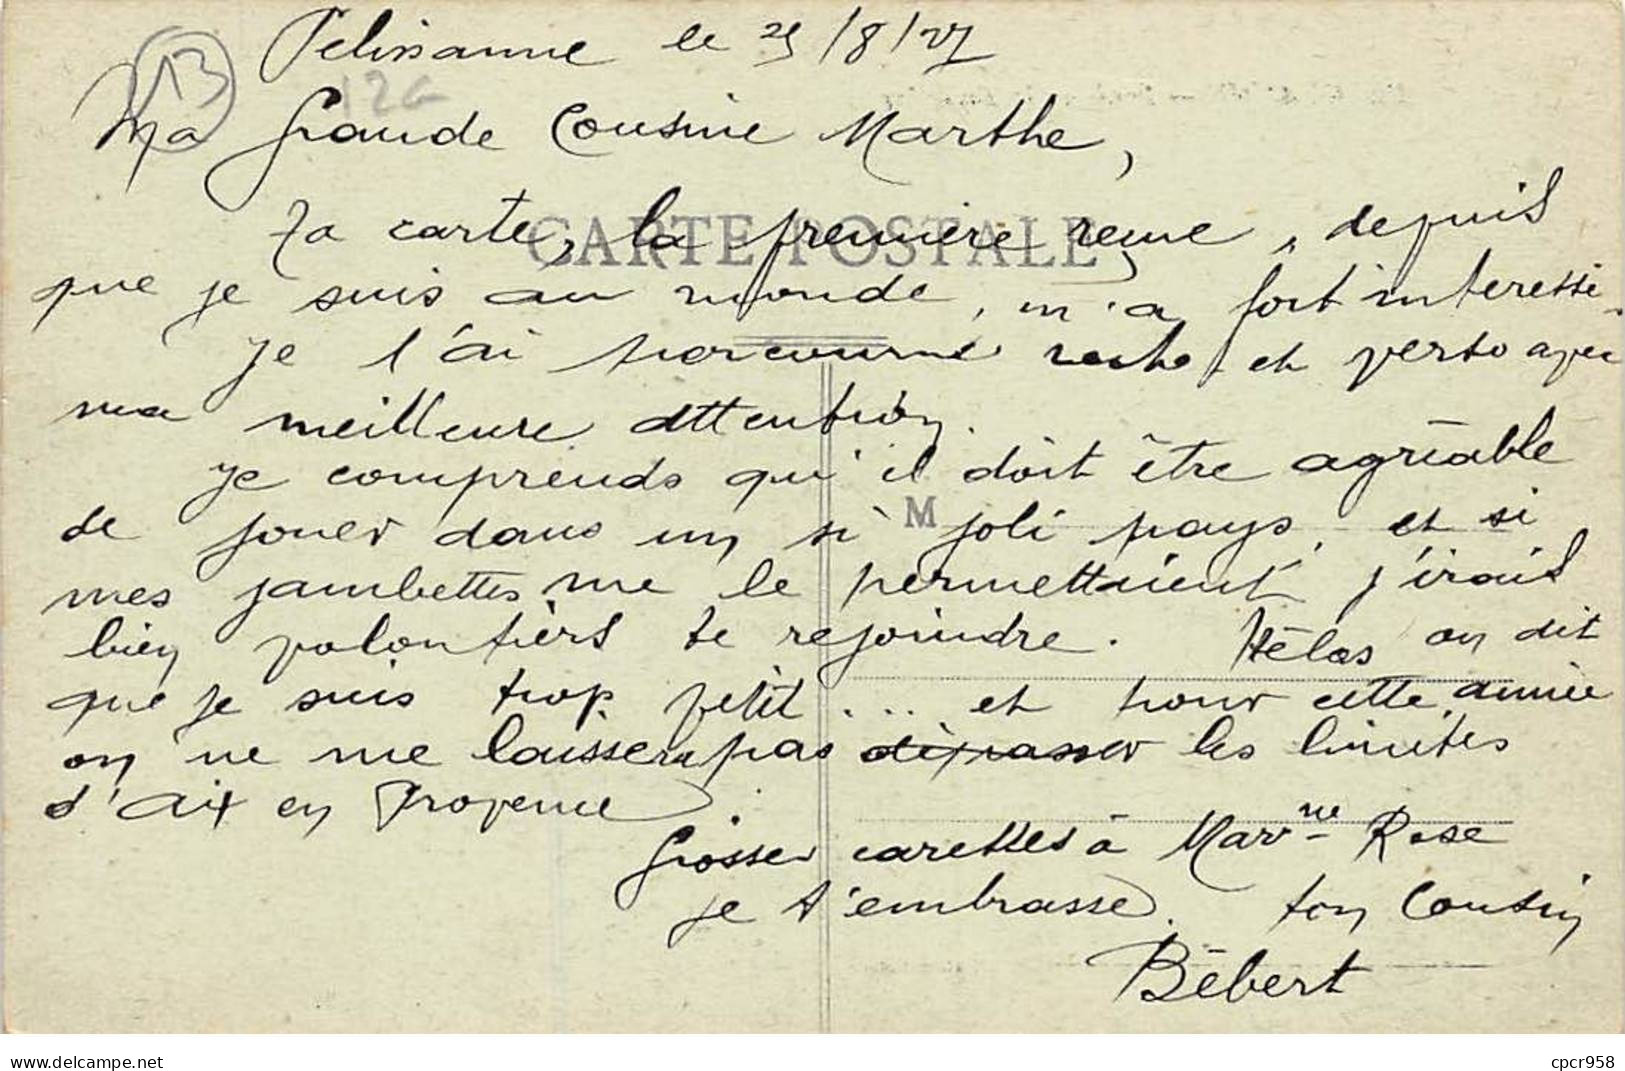 Pelissanne le 25/8/27
13
12G
Ma Grande Cousine Marthe,
CARTE POSTALE
Ta carte, la première reçue, depuis
que je suis au monde, m'a fort interessé.
Je l'ai parcourue recto et verso avec
ma meilleure attention.
Je comprends qu'il doit être agréable
de jouer dans un si joli pays, et si
M
mes jambettes me le permettaient j'irais
bien volontiers te rejoindre. Hélas on dit
que je suis trop petit ... et pour cette année
on ne me laissera pas dépasser les limites
d'Aix en Provence.
Grosses caresses à Marne Rose
je t'embrasse. ton Cousin
Bébert
delcampe.net
cpcr958